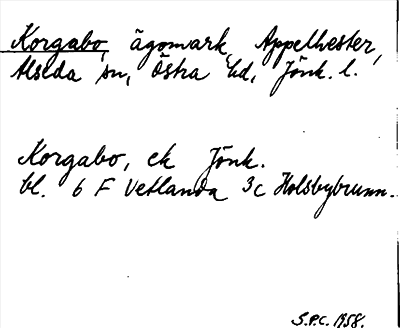 Korgabo, ägomark, Äppelhester,
Alseda sn, Östra hd, Jönk. l.
Korgabo, ek Jönk.
bl. 6 F Vetlanda 3c Holsbybrunn.
S.P.C. 1958.